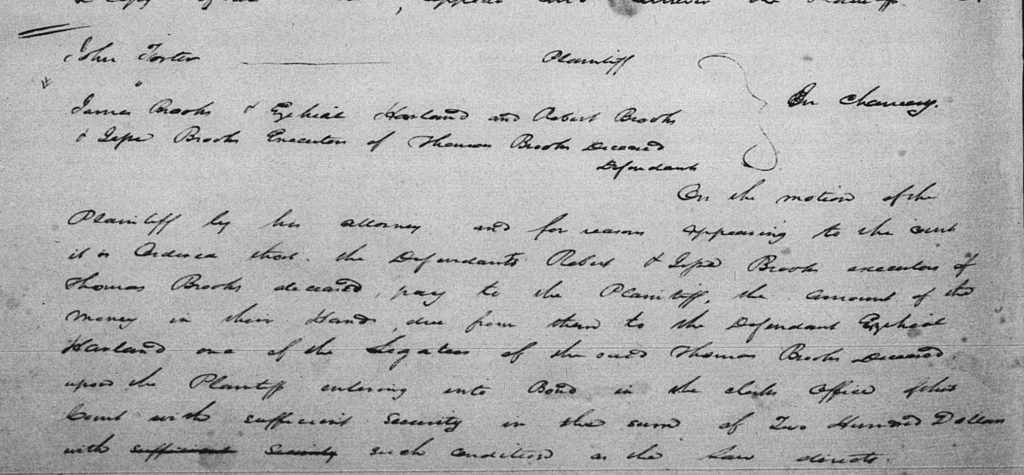 a Copy of the , appear and answer the Plaintiff
John Foster Plaintiff
"
James Brooks & Ezekial Harland and Robert Brooks In Chancery.
& Jesse Brooks Executors of Thomas Brooks Deceased
Defendants
On the motion of the
Plaintiff by his attorney and for reasons appearing to the court
it is Ordered that the Defendants Robert & Jesse Brooks executors of
Thomas Brooks deceased, pay to the Plaintiff, the amount of the
money in their Hands, due from them to the Defendant Ezekial
Harland one of the Legatees of the said Thomas Brooks Deceased
upon the Plaintiff entering into Bond in the clerks office of this
Court with sufficient Security in the sum of Two Hundred Dollars
with sufficient Security such condition as the Law directs.